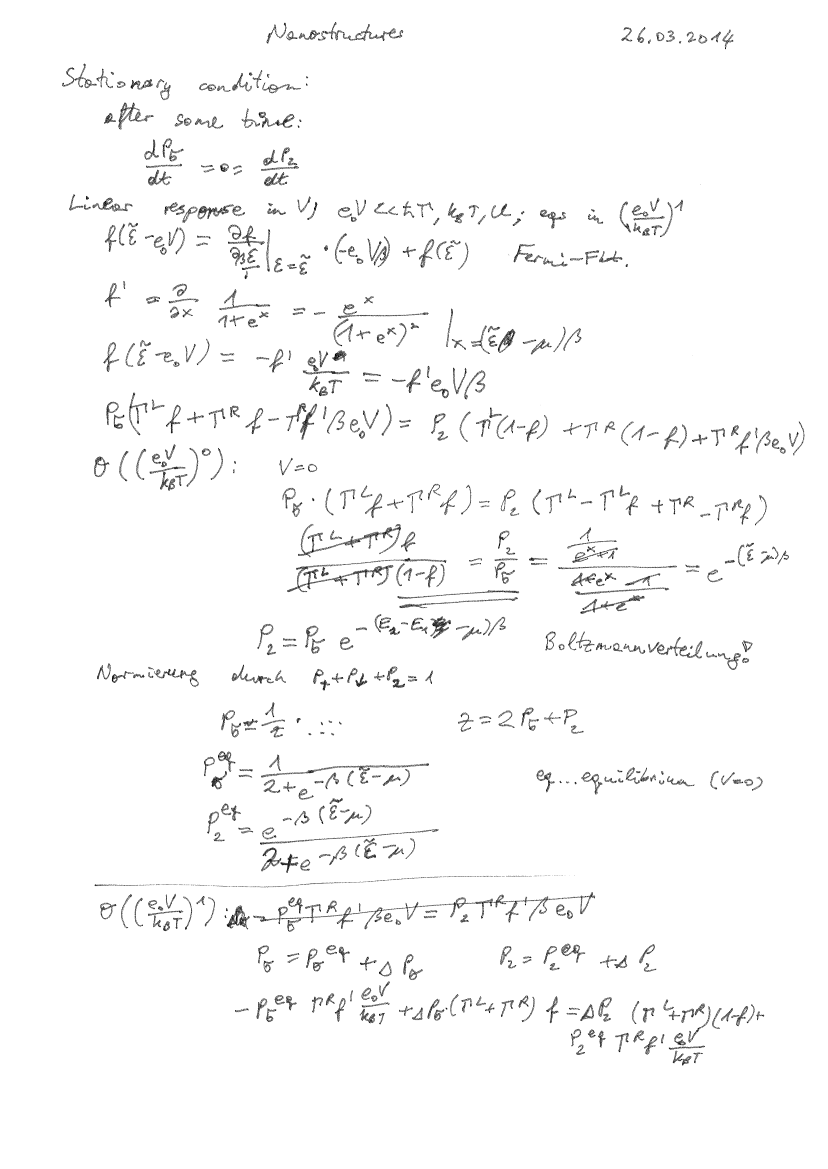 Nanostructures 26.03.2014
Stationary condition:
after some time:
dP_σ/dt = 0 = dP_2/dt
Linear response in V, e₀V << ħΓ, k_BT, U; eqs in (e₀V/k_BT)^1
f(ε̃-e₀V) = ∂f/∂βε̃ |_{ε=ε̃} · (-e₀Vβ) + f(ε̃) Fermi-Fkt.
f' = ∂/∂x 1/(1+e^x) = - e^x/(1+e^x)² |_{x=(ε̃-μ)β}
f(ε̃-e₀V) = -f' e₀V/k_BT = -f'e₀Vβ
P_σ(Γ^L f + Γ^R f - Γ^R f'βe₀V) = P_2 (Γ^L(1-f) + Γ^R(1-f) + Γ^R f'βe₀V)
O((e₀V/k_BT)^0): V=0
P_σ · (Γ^L f + Γ^R f) = P_2 (Γ^L - Γ^L f + Γ^R - Γ^R f)
(Γ^L+Γ^R)f / (Γ^L+Γ^R)(1-f) = P_2/P_σ = (1/(e^x+1)) / ((1+e^x-1)/(1+e^x)) = e^{-(ε̃-μ)β}
P_2 = P_σ e^{-(E_2-E_1-μ)β} Boltzmannverteilung!
Normierung durch P_↑+P_↓+P_2=1
P_σ = 1/Z · .::: Z = 2P_σ+P_2
P_σ^eq = 1/(2+e^{-β(ε̃-μ)}) eq...equilibrium (V=0)
P_2^eq = e^{-β(ε̃-μ)}/(2+e^{-β(ε̃-μ)})
O((e₀V/k_BT)^1): - P_σ^eq Γ^R f'βe₀V = P_2 Γ^R f'βe₀V
P_σ = P_σ^eq + ΔP_σ P_2 = P_2^eq + ΔP_2
-P_σ^eq Γ^R f' e₀V/k_BT + ΔP_σ·(Γ^L+Γ^R) f = ΔP_2 (Γ^L+Γ^R)(1-f)+
P_2^eq Γ^R f' e₀V/k_BT